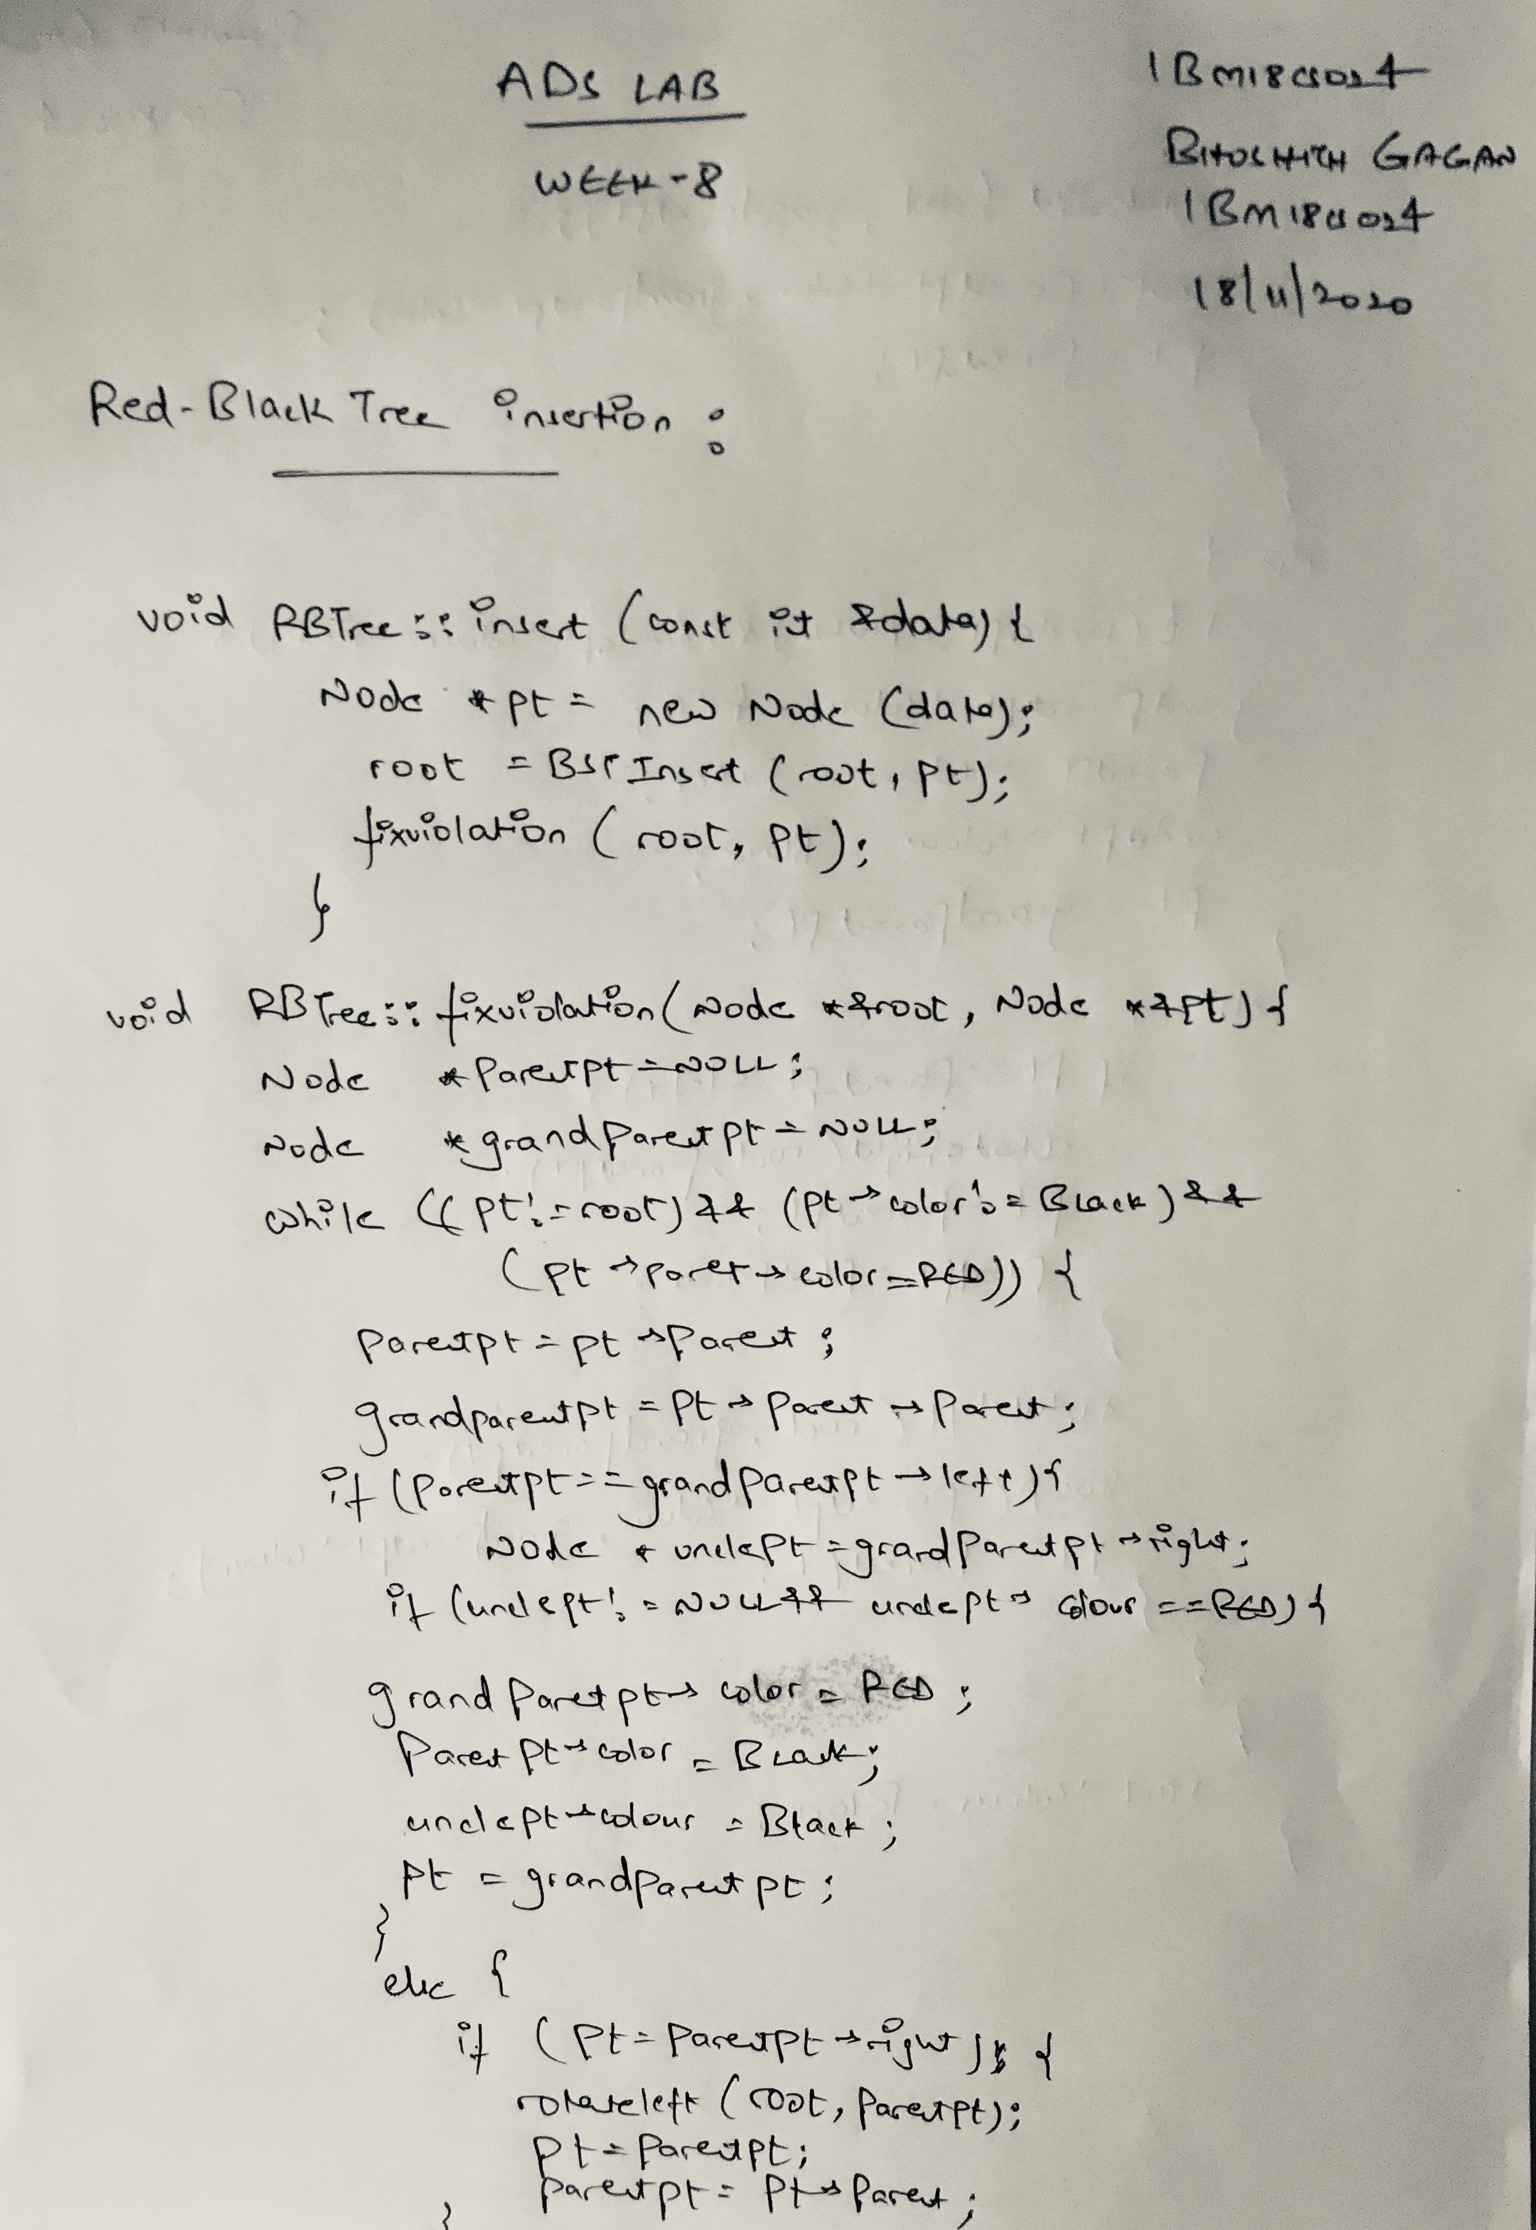 ADS LAB
WEEK-8
1BM18CS024
GAGAN
1BM18CS024
18/11/2020
Red-Black Tree insertion :
void RBTree :: insert (const it &data) {
Node *pt = new Node (data);
root = BSTInsert (root, pt);
fixviolation (root, pt);
}
void RBTree :: fixviolation (Node *&root, Node *&pt) {
Node *Parentpt = NULL;
Node *grandParentpt = NULL;
while ((pt != root) && (pt → color != Black) &&
(pt → paret → color = RED)) {
Parentpt = pt → Parent ;
grandparentpt = Pt → Parent → Parent ;
if (Parentpt == grandParentpt → left) {
Node * unclept = grandParentpt → right;
if (unclept != NULL && unclept → colour == RED) {
grandParetpt → color = RED ;
ParentPt → color = Black;
unclept → colour = Black ;
pt = grandParentpt ;
}
else {
if (Pt = Parentpt → right) {
rotateleft (root, Parentpt);
pt = Parentpt;
parentpt = Pt → Parent ;
}